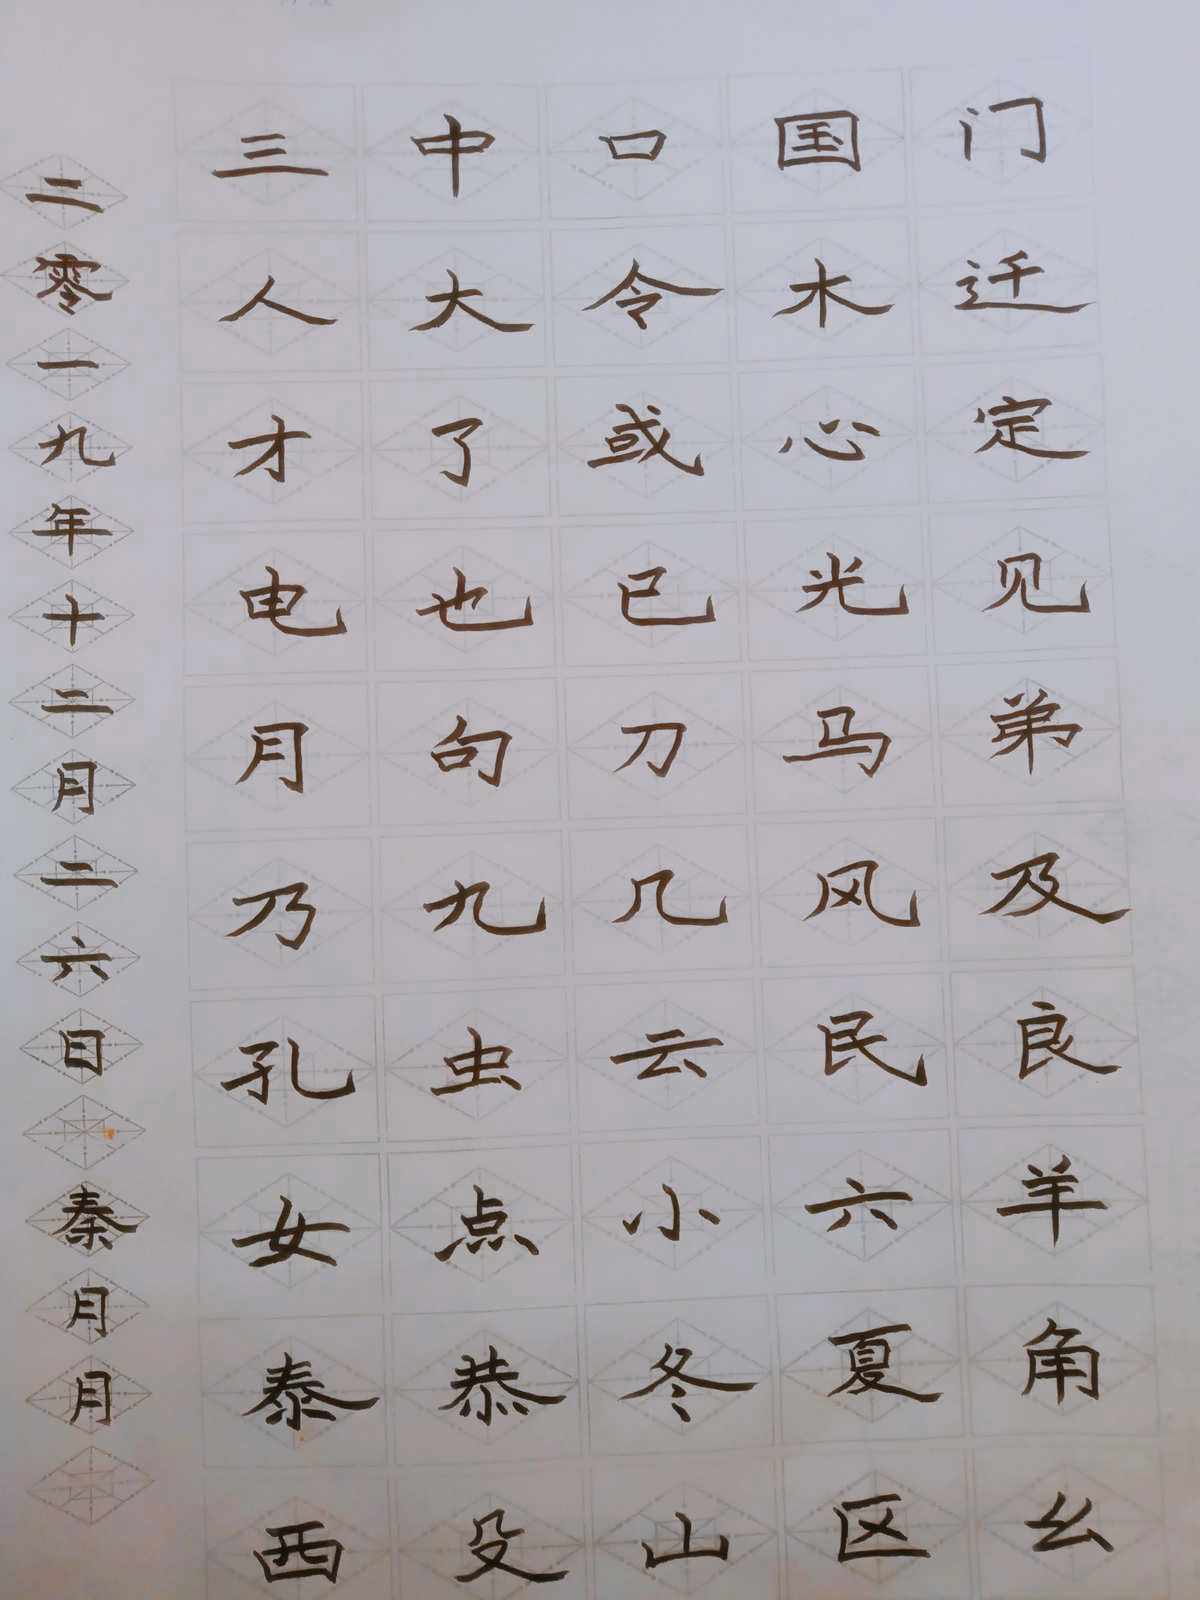 三中口国门
人大令木迁
才了或心定
电也已光见
月句刀马弟
乃九几风及
孔虫云民良
女点小六羊
泰恭冬夏角
西殳山区幺
二零一九年十二月二六日 秦月月